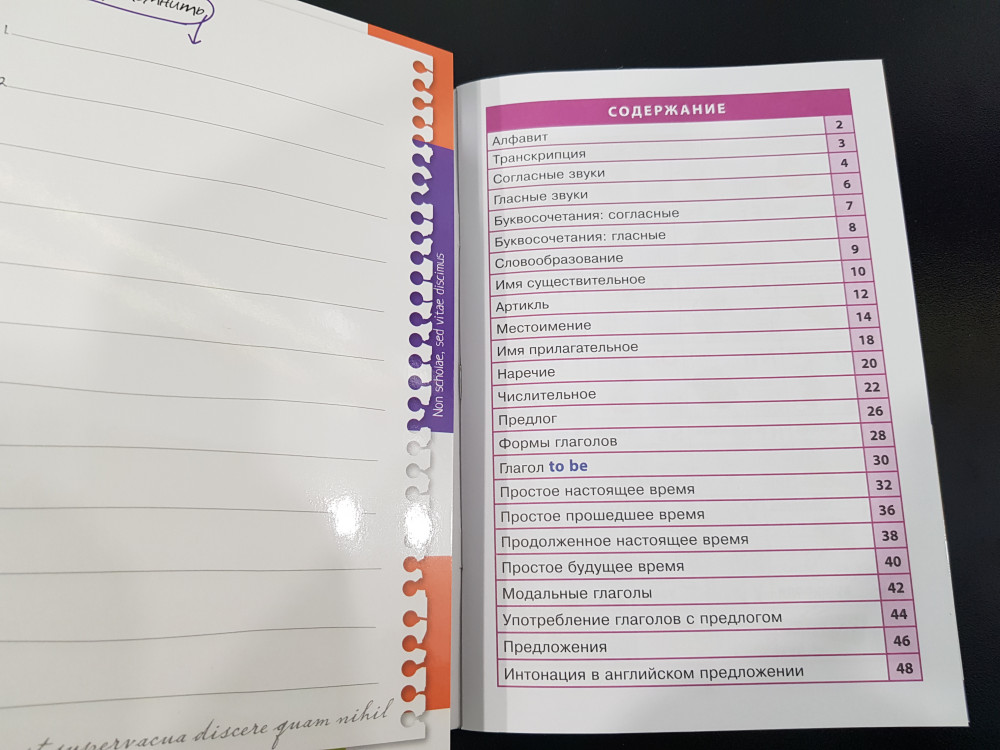 1.
2
Non scholae, sed vitae discimus
supervacua discere quam nihil
СОДЕРЖАНИЕ
Алфавит 2
Транскрипция 3
Согласные звуки 4
Гласные звуки 6
Буквосочетания: согласные 7
Буквосочетания: гласные 8
Словообразование 9
Имя существительное 10
Артикль 12
Местоимение 14
Имя прилагательное 18
Наречие 20
Числительное 22
Предлог 26
Формы глаголов 28
Глагол to be 30
Простое настоящее время 32
Простое прошедшее время 36
Продолженное настоящее время 38
Простое будущее время 40
Модальные глаголы 42
Употребление глаголов с предлогом 44
Предложения 46
Интонация в английском предложении 48